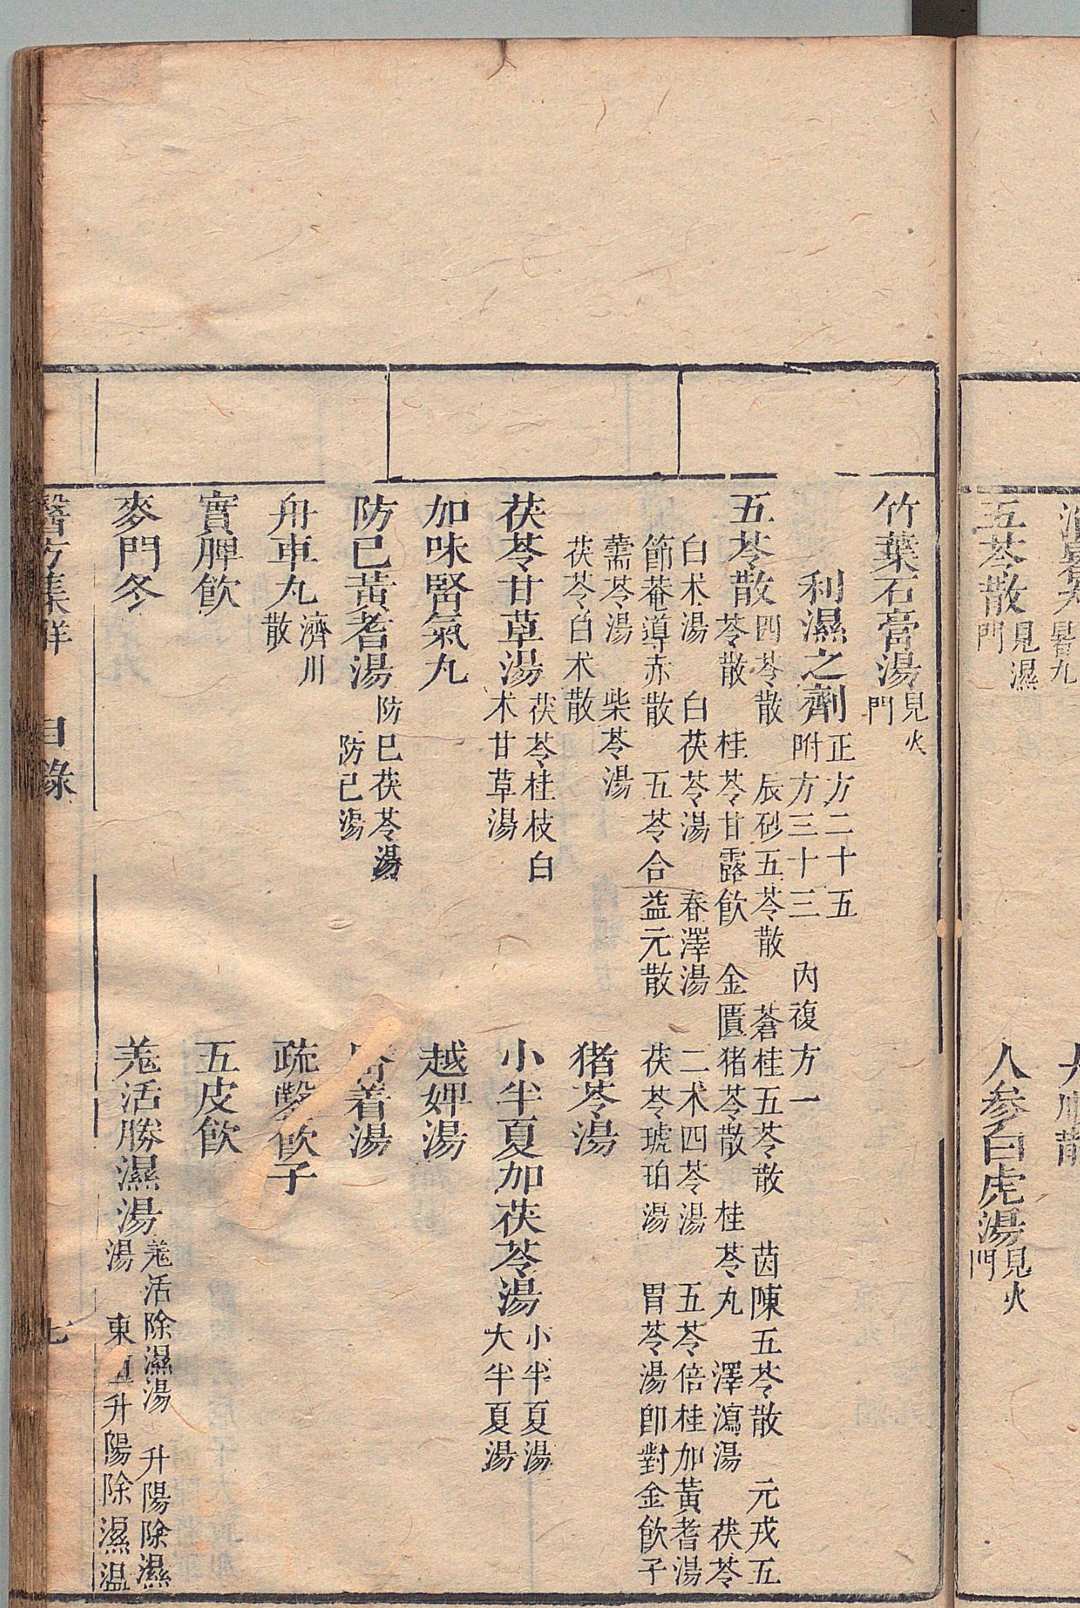 大順散
消暑丸
人參白虎湯見火門
五苓散見濕門
竹葉石膏湯見火門
利濕之劑正方二十五 附方三十三 內複方一
五苓散四苓散 辰砂五苓散 蒼桂五苓散 茵陳五苓散 元戎五
苓散 桂苓甘露飲 金匱猪苓散 桂苓丸 澤瀉湯 茯苓
白术湯 白茯苓湯 春澤湯 二术四苓湯 五苓倍桂加黃耆湯
節菴導赤散 五苓合益元散 茯苓琥珀湯 胃苓湯卽對金飲子
薷苓湯 柴苓湯
茯苓白术散
猪苓湯
茯苓甘草湯茯苓桂枝白
术甘草湯
小半夏加茯苓湯小半夏湯
大半夏湯
加味腎氣丸
越婢湯
防已黃耆湯防已茯苓湯
防已湯
腎着湯
舟車丸濬川
散
疏鑿飲子
實脾飲
五皮飲
麥門冬
羗活勝濕湯羗活除濕湯 升陽除濕
湯 東垣升陽除濕溫
醫方集解 目錄 七